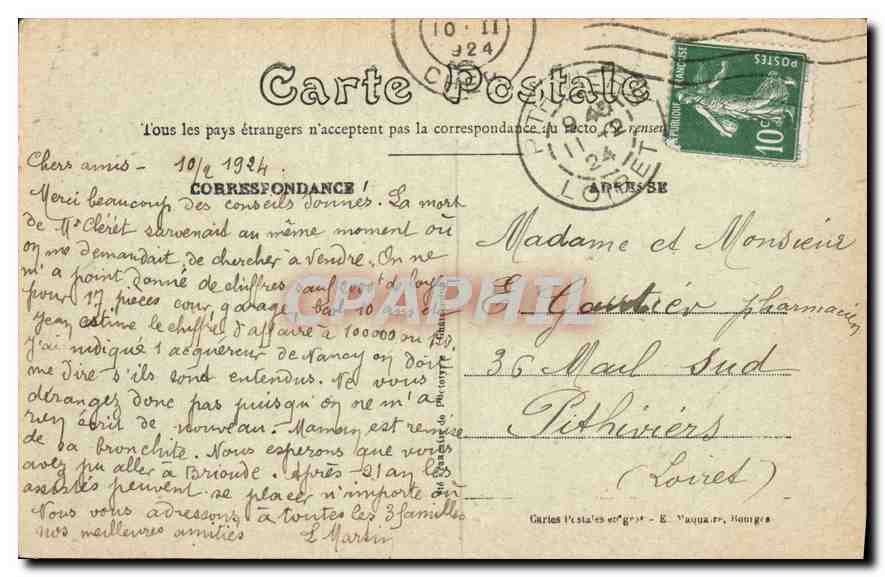 10·II
1924
Carte Postale
Tous les pays étrangers n'acceptent pas la correspondance au recto
9 45
11 - 2
24
LOIRET
POSTES
RÉPUBLIQUE FRANÇAISE
10c
CORRESPONDANCE
ADRESSE
Chers amis - 10/2 1924.
Merci beaucoup des conseils donnés. La mort
de Mr Cléret survenait au même moment où
on me demandait de chercher à vendre. On ne
m'a point donné de chiffres sauf de loyer
pour 17 pièces cour, garage, 10 ans
Jean estime le chiffre d'affaire à 100000 ou
J'ai indiqué 1 acquéreur de Nancy on doit
me dire s'ils sont entendus. Ne vous
dérangez donc pas puisqu'on ne m'a
rien écrit de nouveau. Maman est remise
de sa bronchite. Nous espérons que vous
avez pu aller à Brioude. Après 21 an les
assistés peuvent se placer n'importe où
Nous vous adressons à toutes les 3 familles
nos meilleures amitiés L Martin
Madame et Monsieur
E Gautier pharmacien
36 Mail Sud
Pithiviers
(Loiret)
Cartes Postales en gros - E. Maquaire, Bourges
CPAPHIL